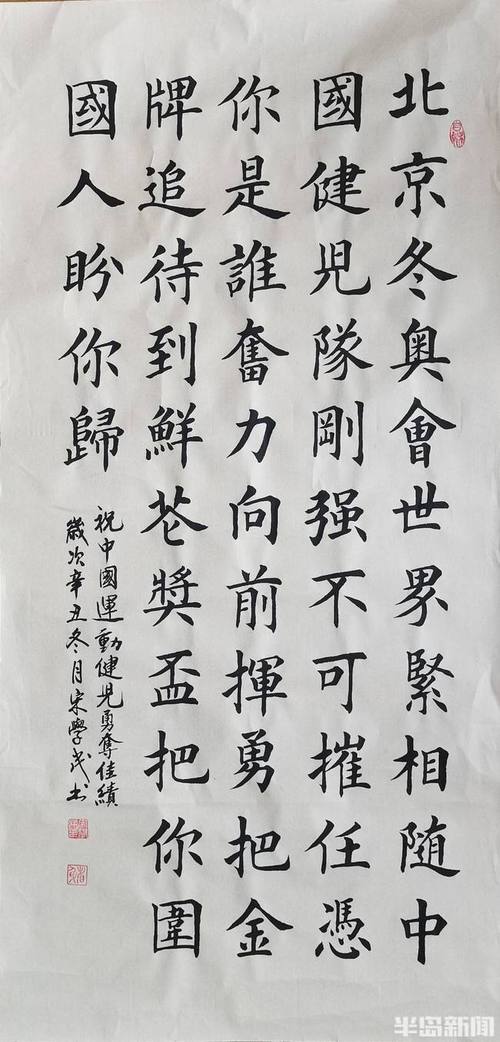 北京冬奥會世界緊相随中
國健児隊剛强不可摧任憑
你是誰奮力向前揮勇把金
牌追待到鮮花獎盃把你圍
國人盼你歸
祝中國運動健児勇奪佳績
歲次辛丑冬月宋學茂书
半岛新闻